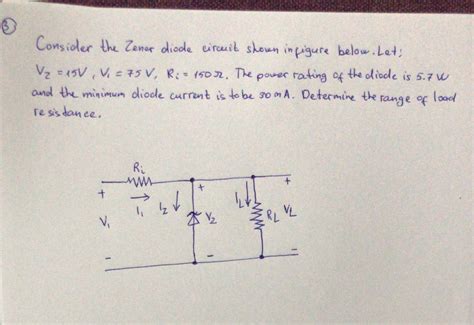 3
Consider the Zener diode circuit shown in figure below. Let;
Vz = 15V, Vi = 75 V, Ri = 150Ω. The power rating of the diode is 5.7 W
and the minimum diode current is to be 30 mA. Determine the range of load
resistance.
Ri
+ + +
I1 Iz IL
Vi Vz RL VL
- - -